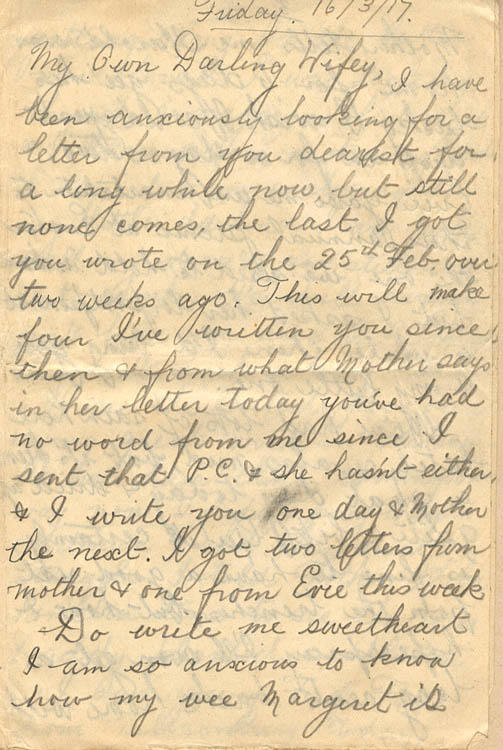 Friday. 16/3/17.
My Own Darling Wifey, I have
been anxiously looking for a
letter from you dearest for
a long while now but still
none comes, the last I got
you wrote on the 25th Feb. over
two weeks ago. This will make
four I've written you since
then & from what Mother says
in her letter today you've had
no word from me since I
sent that P.C. & she hasn't either,
& I write you one day & Mother
the next. I got two letters from
mother & one from Evie this week
Do write me sweetheart
I am so anxious to know
how my wee Margaret is